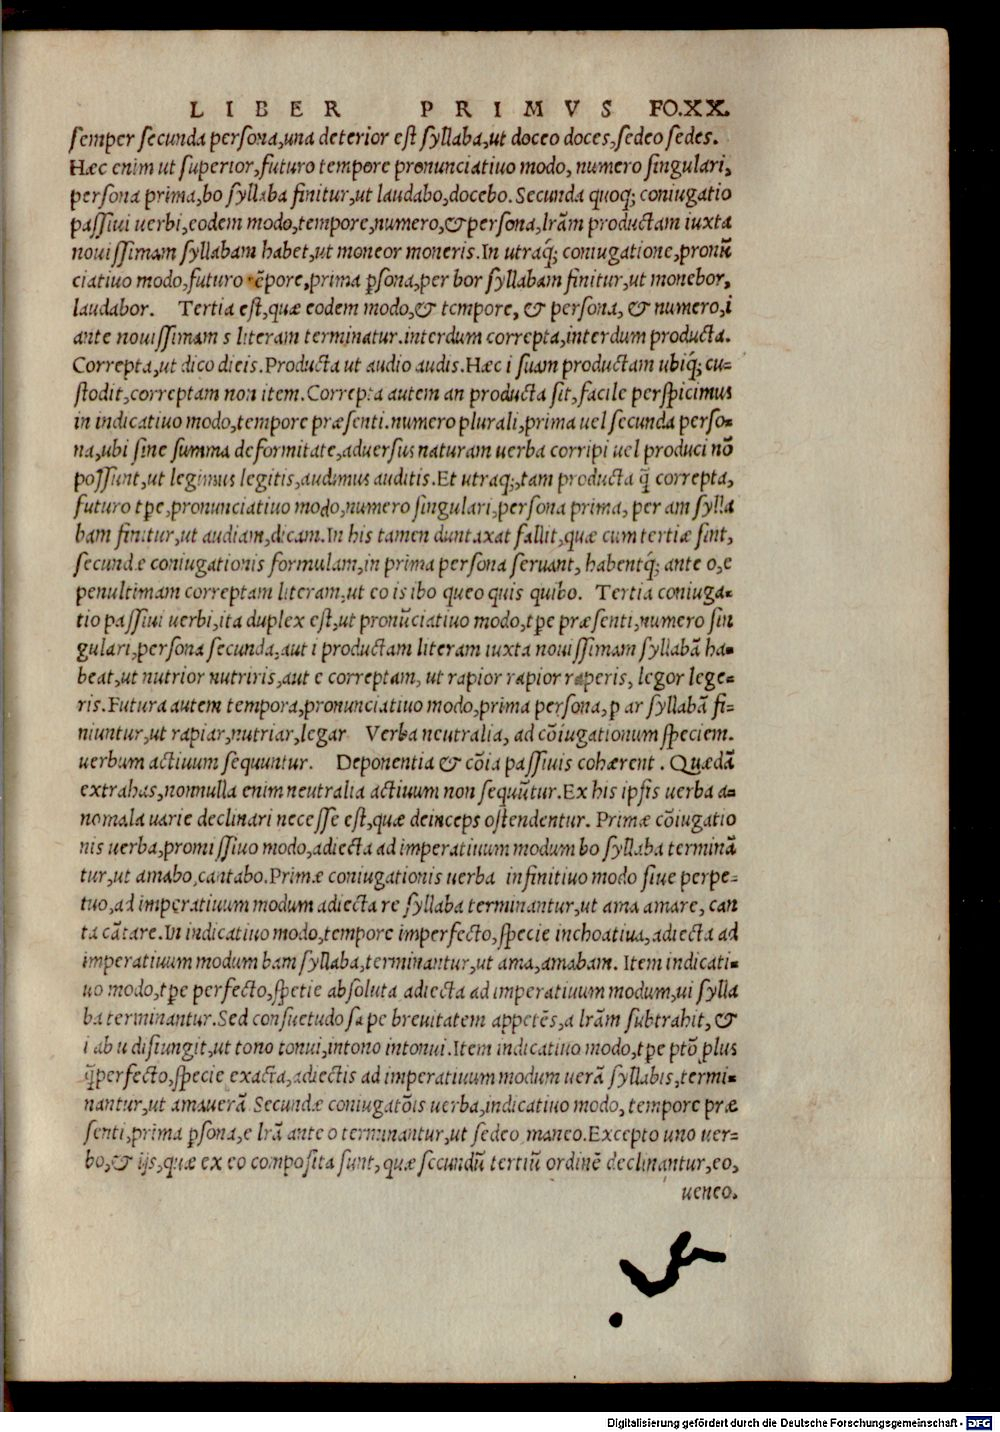 LIBER PRIMVS FO.XX.
semper secunda persona,una deterior est syllaba,ut doceo doces,sedeo sedes.
Hæc enim ut superior,futuro tempore pronunciatiuo modo, numero singulari,
persona prima,bo syllaba finitur,ut laudabo,docebo. Secunda quoq; coniugatio
passiui uerbi,eodem modo,tempore,numero,& persona,lrãm productam iuxta
nouissimam syllabam habet,ut moneor moneris.In utraq́; coniugatione,pronũ
ciatiuo modo,futuro tẽpore,prima ꝑsona,per bor syllabam finitur,ut monebor,
laudabor. Tertia est,quæ eodem modo,& tempore, & persona, & numero,i
ante nouissimam s literam terminatur.interdum correpta,interdum producta.
Correpta,ut dico dicis.Producta ut audio audis.Hæc i suam productam ubiq́; cu=
stodit,correptam non item.Correpta autem an producta sit,facile perspicimus
in indicatiuo modo,tempore præsenti.numero plurali,prima uel secunda perso=
na,ubi sine summa deformitate,aduersus naturam uerba corripi uel produci nõ
possunt,ut legimus legitis,audimus auditis.Et utraq;,tam producta q̃ correpta,
futuro tꝑe,pronunciatiuo modo,numero singulari,persona prima, per am sylla
bam finitur,ut audiam,dicam.In his tamen duntaxat fallit,quæ cum tertiæ sint,
secundæ coniugationis formulam,in prima persona seruant, habentq́; ante o,e
penultimam correptam literam,ut eo is ibo queo quis quibo. Tertia coniuga=
tio passiui uerbi,ita duplex est,ut pronũciatiuo modo,tꝑe præsenti,numero sin
gulari,persona secunda,aut i productam literam iuxta nouissimam syllabã ha=
beat,ut nutrior nutriris,aut e correptam, ut rapior rapior raperis, legor lege=
ris.Futura autem tempora,pronunciatiuo modo,prima persona,ꝑ ar syllabã fi=
niuntur,ut rapiar,nutriar,legar Verba neutralia, ad cõiugationum speciem.
uerbum actiuum sequuntur. Deponentia & cõia passiuis cohærent. Quædã
extrahas,nonnulla enim neutralia actiuum non sequũtur.Ex his ipsis uerba a=
nomala uarie declinari necesse est,quæ deinceps ostendentur. Primæ cõiugatio
nis uerba,promissiuo modo,adiecta ad imperatiuum modum bo syllaba terminã
tur,ut amabo,cantabo.Primæ coniugationis uerba infinitiuo modo siue perpe=
tuo,ad imperatiuum modum adiecta re syllaba terminantur,ut ama amare, can
ta cãtare.In indicatiuo modo,tempore imperfecto,specie inchoatiua,adiecta ad
imperatiuum modum bam syllaba,terminantur,ut ama,amabam. Item indicati=
uo modo,tꝑe perfecto,spetie absoluta adiecta ad imperatiuum modum,ui sylla
ba terminantur.Sed consuetudo sæpe breuitatem appetẽs,a lrãm subtrahit, &
i ab u disiungit,ut tono tonui,intono intonui.Item indicatiuo modo,tꝑe ptõ plus
q̃perfecto,specie exacta,adiectis ad imperatiuum modum uerã syllabis,termi=
nantur,ut amauerã Secundæ coniugatõis uerba,indicatiuo modo, tempore præ
senti,prima ꝑsona,e lrã ante o terminantur,ut sedeo maneo.Excepto uno uer=
bo,& ijs,quæ ex eo composita sunt,quæ secundũ tertiũ ordinẽ declinantur,eo,
ueneo.
Digitalisierung gefördert durch die Deutsche Forschungsgemeinschaft - DFG